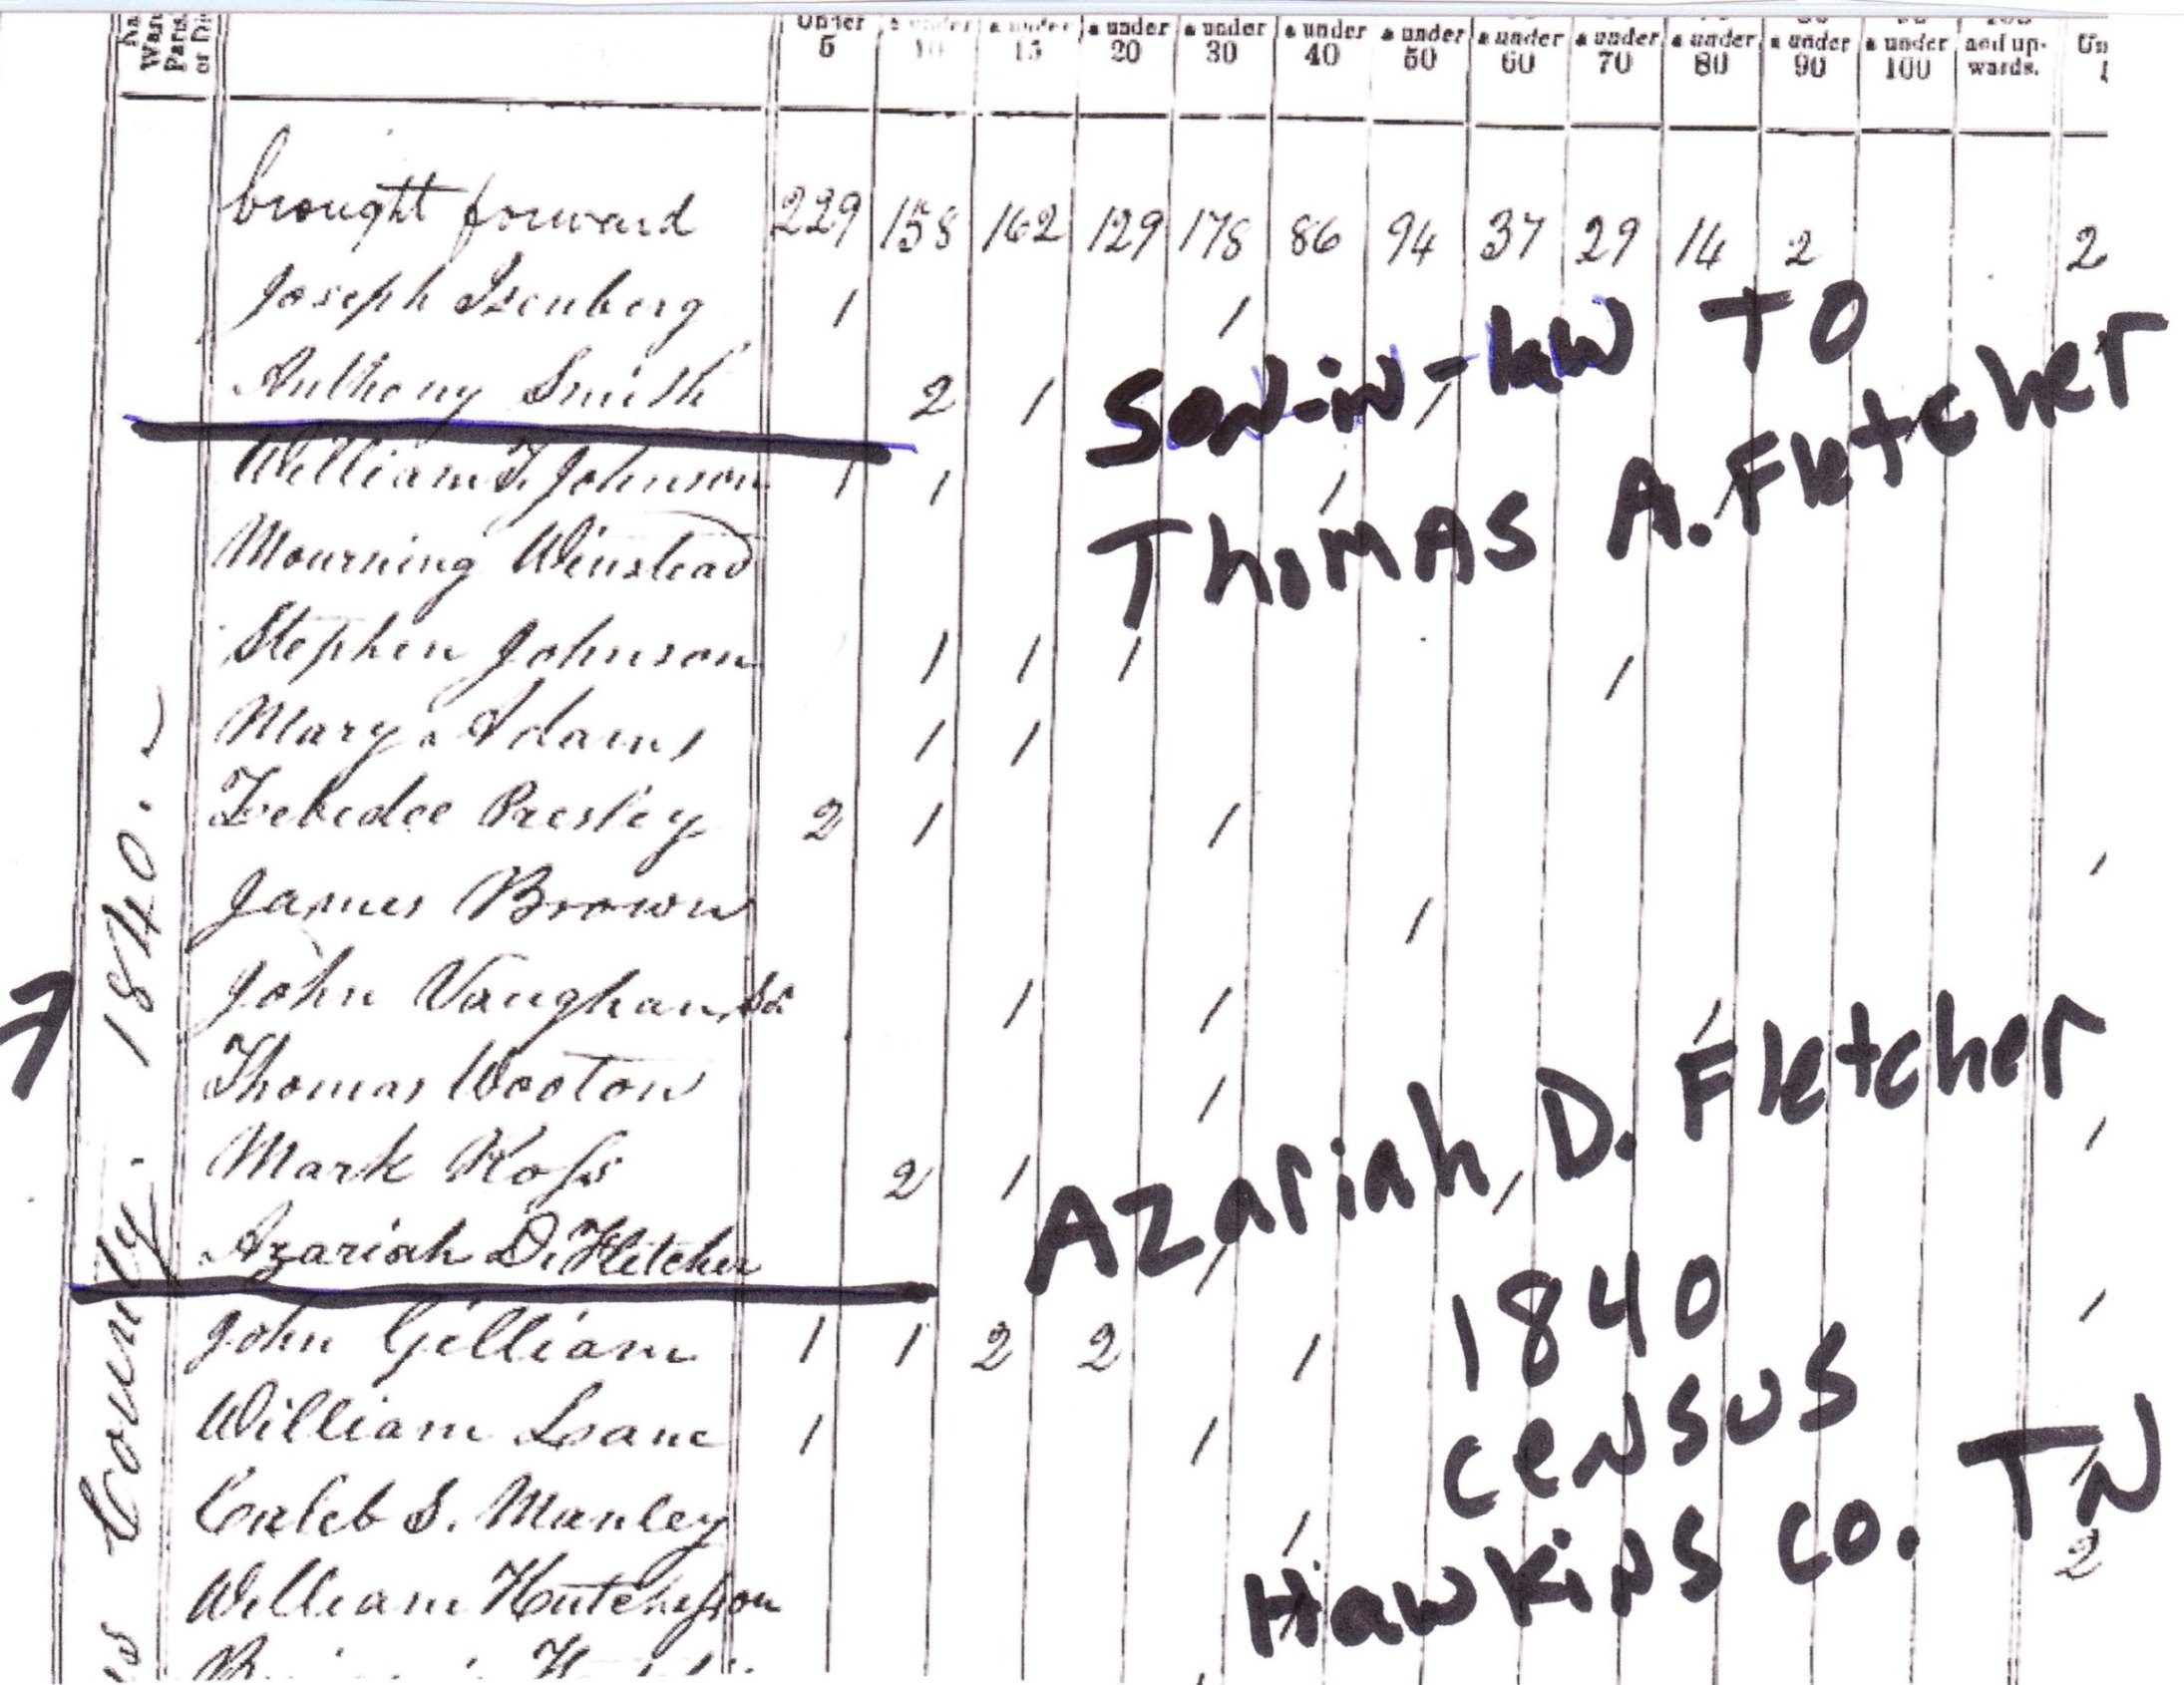 Under & under & under & under & under & under & under & under & under & under & under and up-
5 10 15 20 30 40 50 60 70 80 90 100 wards.
brought forward 229 158 162 129 178 86 94 37 29 14 2 2
Joseph Isenberg 1 1
Anthony Smith 2 1 1
Son-in-law TO
Thomas A. Fletcher
William T. Johnson 1 1 1
Mourning Winstead
Stephen Johnson 1 1 1 1
Mary Adams 1 1
Zebedee Presley 2 1 1 1
James Brown 1
John Vaughan 1 1 1
Thomas Wooton 1 1
Mark Ross 2 1 1
Azariah D. Fletcher 1 1
Azariah D. Fletcher
1840
Census
Hawkins Co. TN
John Gilliam 1 1 2 2 1
William Lane 1 1 1
Caleb S. Manley 1 2
William Hutchisson
County. 1840.